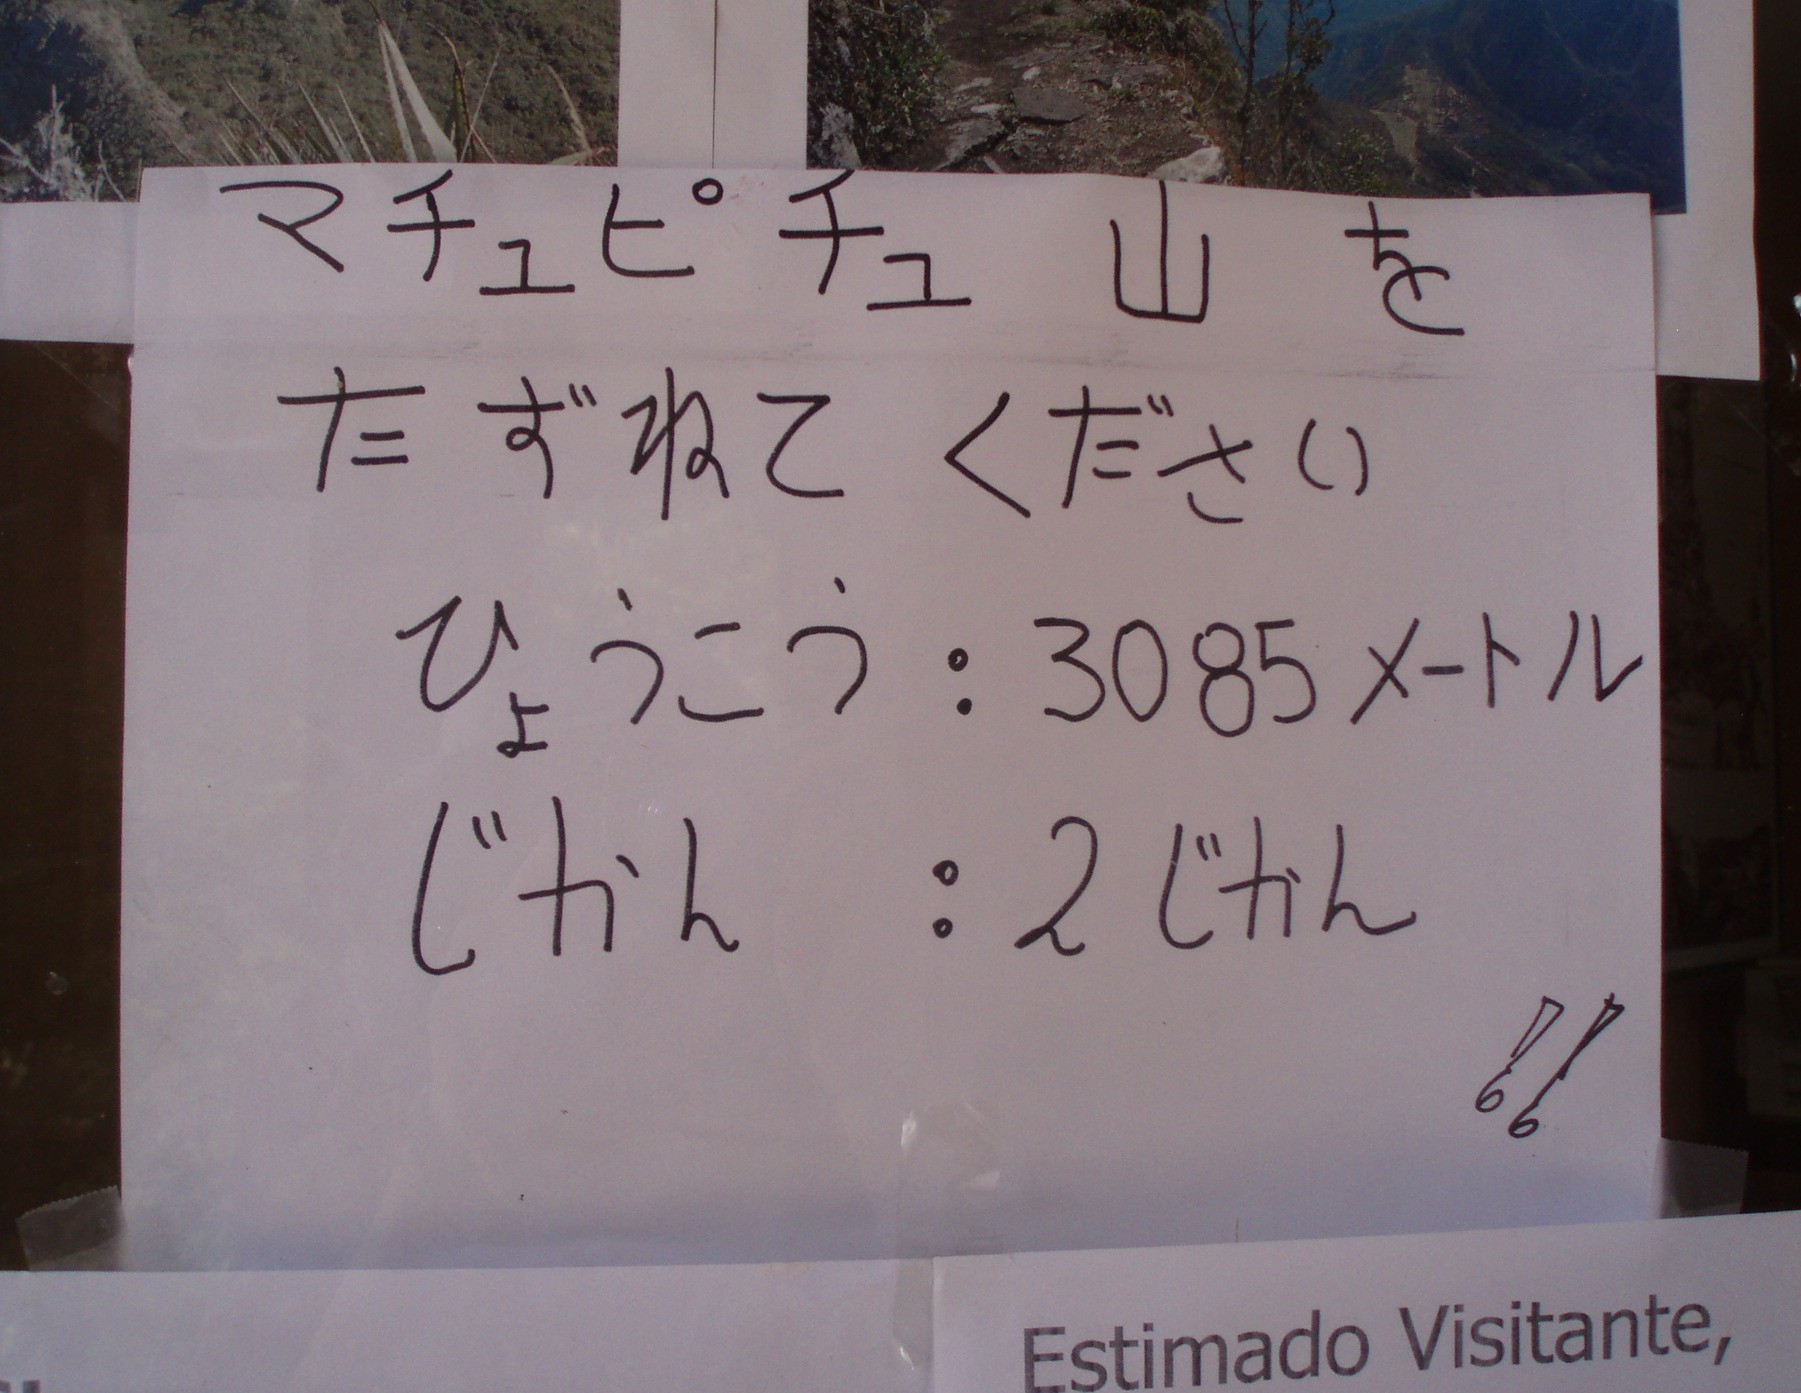 マチュピチュ 山 を
たずねて ください
ひょうこう：3085メートル
じかん ：2じかん
!!
Estimado Visitante,